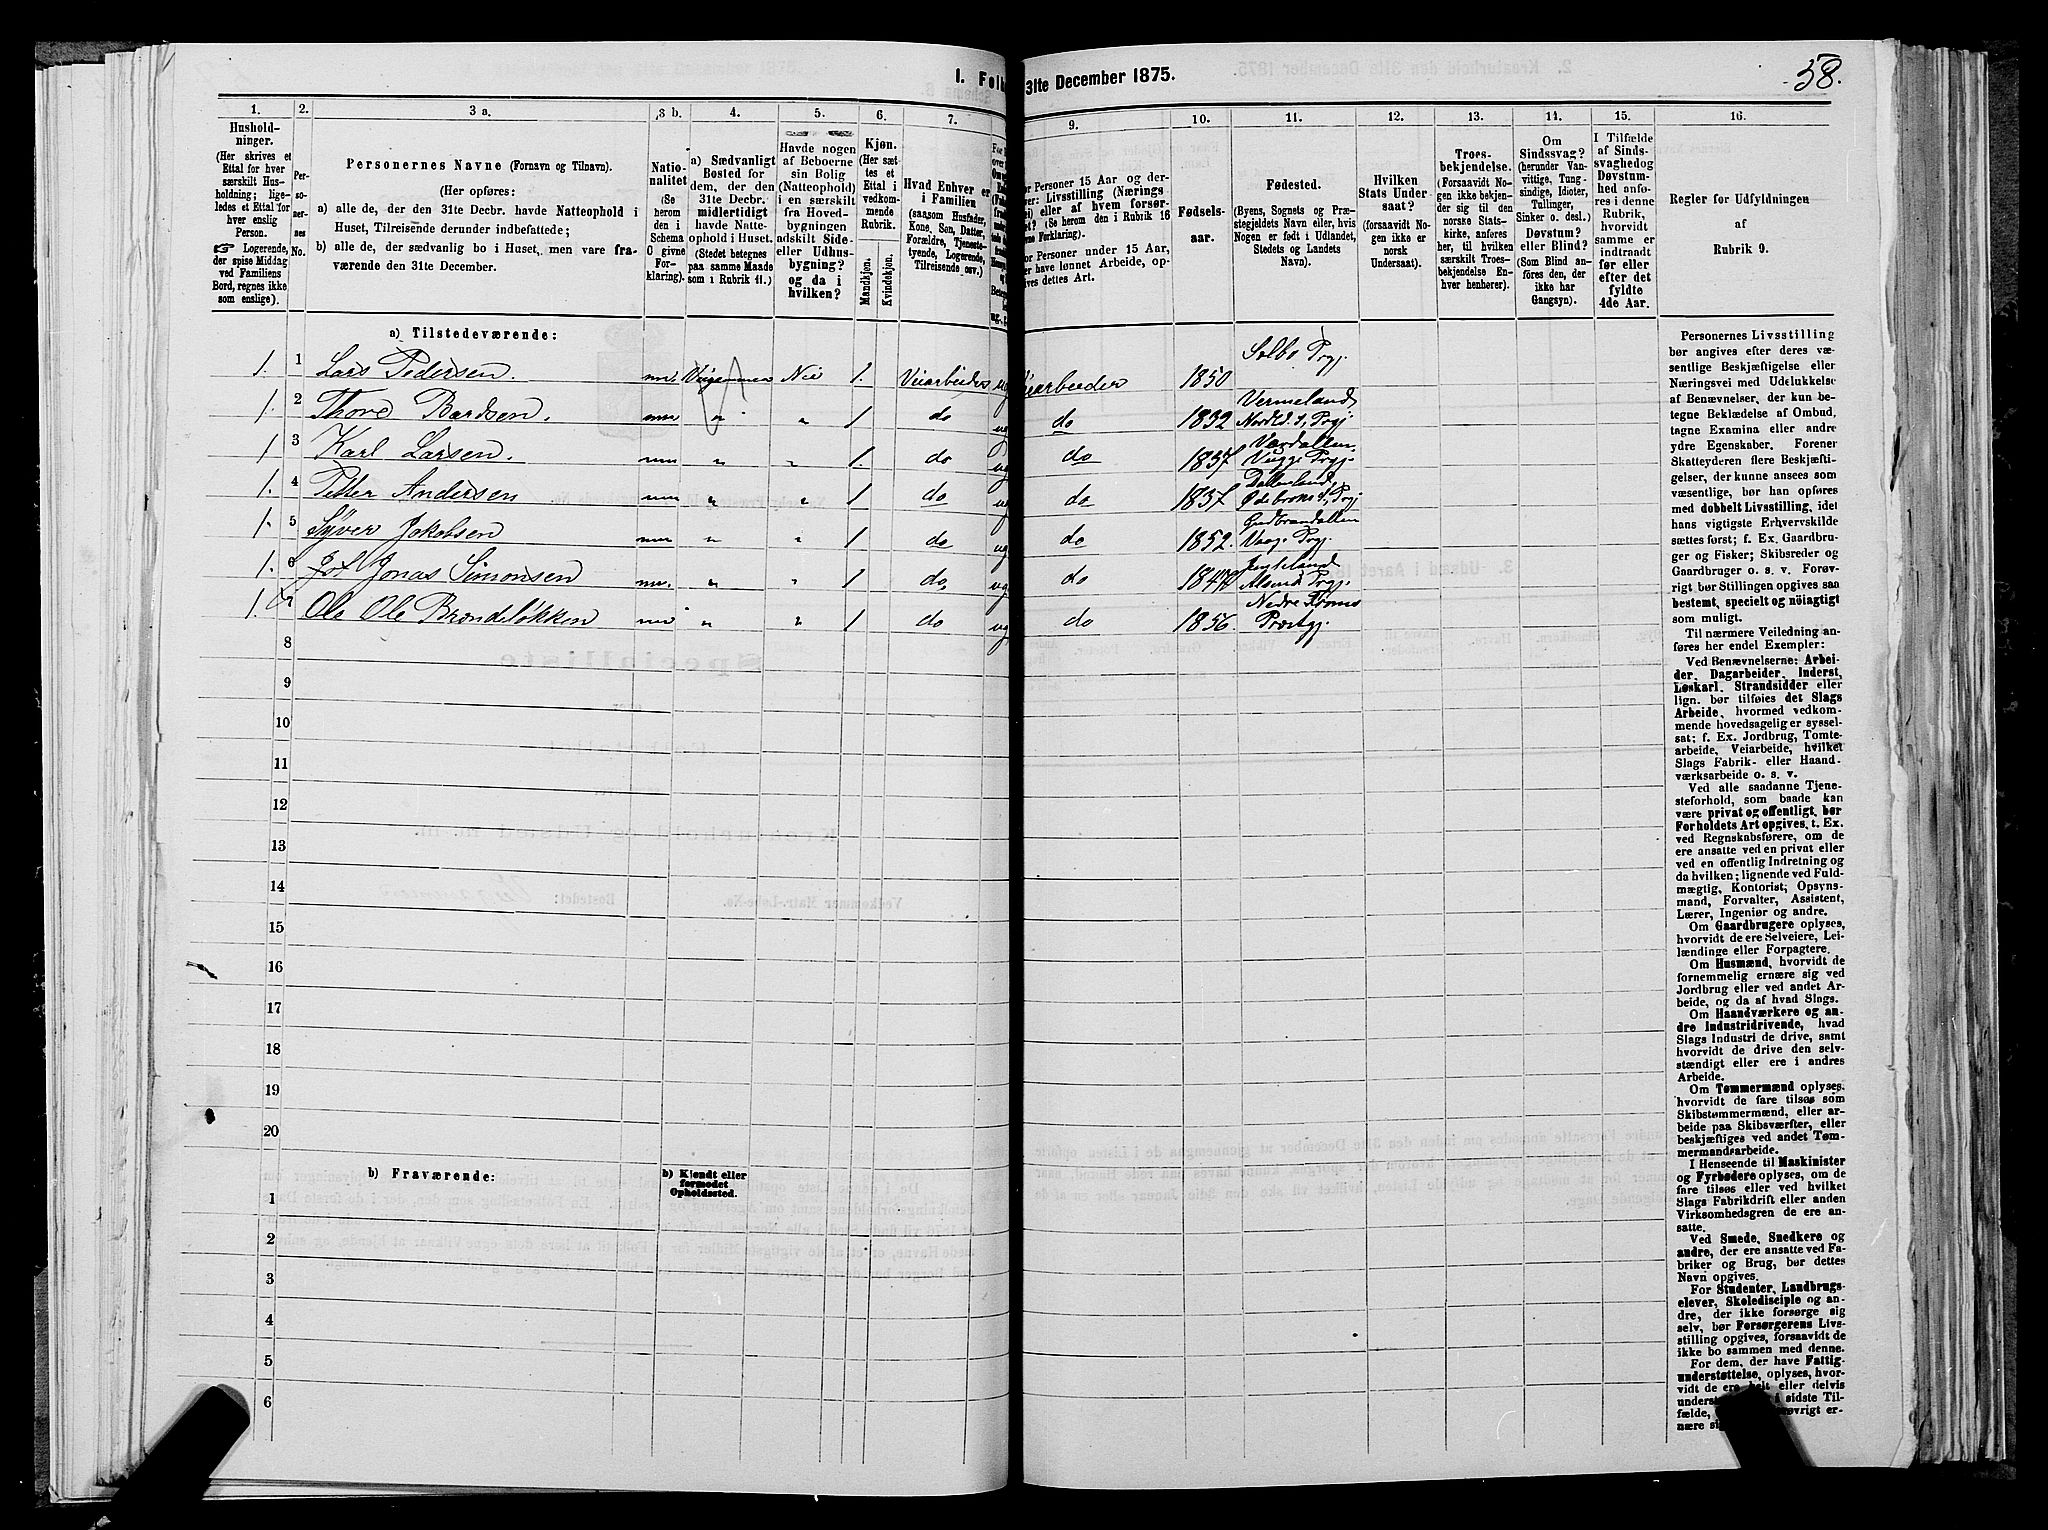 58.
1. Folk
31te December 1875.
1.
Hushold-
ninger.
(Her skrives et
Ettal for hver
særskilt Hus-
holdning; lige-
ledes et Ettal for
hver enslig
Person.
☞ Logerende,
der spise Middag
ved Familiens
Bord, regnes ikke
som enslige).
2.
Per-
so-
ner-
nes
No.
3 a.
Personernes Navne (Fornavn og Tilnavn).
(Her opføres:
a) alle de, der den 31te Decbr. havde Natteophold i
Huset, Tilreisende derunder indbefattede;
b) alle de, der sædvanlig bo i Huset, men vare fra-
værende den 31te December.
3 b.
Natio-
nalitet
(Se
herom
den i
Schema
O givne
For-
klaring).
4.
a) Sædvanligt
Bosted for
dem, der den
31te Decbr.
midlertidigt
havde Natte-
ophold i Huset.
(Stedet betegnes
paa samme Maade
som i Rubrik 11.)
5.
Havde nogen
af Beboerne
sin Bolig
(Natteophold)
i en særskilt
fra Hoved-
bygningen
adskilt Side-
eller Udhus-
bygning?
og da i
hvilken?
6.
Kjøn.
(Her sæt-
tes et
Ettal i
vedkom-
mende
Rubrik.
Mandkjøn.
Kvindekjøn.
7.
Hvad Enhver er
i Familien
(saasom Husfader,
Kone, Søn, Datter,
Forældre, Tjeneste-
tyende, Logerende,
Tilreisende osv.)
9.
or Personer 15 Aar og der-
rer: Livsstilling (Nærings
ei) eller af hvem forsør-
et? (Se herom den i Rubrik 16
ne Forklaring).
or Personer under 15 Aar,
er have lønnet Arbeide, op-
ives dettes Art.
10.
Fødsels-
aar.
11.
Fødested.
(Byens, Sognets og Præ-
stegjeldets Navn eller, hvis
Nogen er født i Udlandet,
Stedets og Landets
Navn).
12.
Hvilken
Stats Under-
saat?
(forsaavidt No-
gen ikke er
norsk
Undersaat).
13.
Troes-
bekjendelse.
(Forsaavidt No-
gen ikke bekjen-
der sig til den
norske Stats-
kirke, anføres
her, til hvilken
særskilt Troes-
bekjendelse En-
hver henhører).
14.
Om
Sindssvag?
(herunder Van-
vittige, Tung-
sindige, Idioter,
Tullinger,
Sinker o. desl.)
Døvstum?
eller Blind?
(Som Blind an-
føres den, der
ikke har
Gangsyn).
15.
I Tilfælde
af Sinds-
svaghed og
Døvstum-
hed anfø-
res i denne
Rubrik,
hvorvidt
samme er
indtraadt
før eller
efter det
fyldte
4de Aar.
16.
Regler for Udfyldningen
af
Rubrik 9.
a) Tilstedeværende:
1. 1 Lars Pedersen. Nei 1. Veiarbeider Veiarbeider 1850 Selbo Prgj.
1. 2 Thore Bardsen. " " 1 do do 1832 Vermeland
1. 3 Karl Larsen. " " 1. do do 1837
1. 4 Petter Andersen " " 1 do do 1837
1. 5 Syver Jakobsen " " 1 do do 1852. Gudbrandallen Vaage Prgj.
1. 6 Jonas Simonsen " " 1 do do
1. 7 Ole Ole Brændeløkken " " 1 do do 1856. Præstgj.
8
9
10
11
12
13
14
15
16
17
18
19
20
b) Fraværende:
b) Kjendt eller
formodet
Opholdssted.
1
2
3
4
5
6
Personernes Livsstilling
bør angives efter deres væ-
sentlige Beskjæftigelse eller
Næringsvei med Udelukkelse
af Benævnelser, der kun be-
tegne Beklædelse af Ombud,
tagne Examina eller andre
ydre Egenskaber. Forener
Skatteyderen flere Beskjæfti-
gelser, der kunne ansees som
væsentlige, bør han opføres
med dobbelt Livsstilling, idet
hans vigtigste Erhvervskilde
sættes først; f. Ex. Gaardbru-
ger og Fisker; Skibsreder og
Gaardbruger o. s. v. Forøv-
rigt bør Stillingen opgives saa
bestemt, specielt og nöiagtigt
som muligt.
Til nærmere Veiledning an-
føres her endel Exempler:
Ved Benævnelserne: Arbei-
der, Dagarbeider, Inderst,
Løskarl, Strandsidder eller
lign. bør tilføies det Slags
Arbeide, hvormed vedkom-
mende hovedsagelig er syssel-
sat; f. Ex. Jordbrug, Tomte-
arbeide, Veiarbeide, hvilket
Slags Fabrik- eller Haand-
værksarbeide o. s. v.
Ved alle saadanne Tjene-
steforhold, som baade kan
være privat og offentligt, bør
Forholdets Art opgives, t. Ex.
ved Regnskabsførere, om de
ere ansatte ved en privat eller
ved en offentlig Indretning og
da hvilken; lignende ved Fuld-
mægtig, Kontorist; Opsyns-
mand, Forvalter, Assistent,
Lærer, Ingeniør og andre.
Om Gaardbrugere oplyses,
hvorvidt de ere Selveiere, Lei-
lændinge eller Forpagtere.
Om Husmænd, hvorvidt de
fornemmelig ernære sig ved
Jordbrug eller ved andet Ar-
beide, og da af hvad Slags.
Om Haandværkere og an-
dre Industridrivende, hvad
Slags Industri de drive, samt
hvorvidt de drive den selv-
stændigt eller ere i andres
Arbeide.
Om Tømmermænd oplyses,
hvorvidt de fare tilsøs som
Skibstømmermænd, eller ar-
beide paa Skibsværfter, eller
beskjæftiges ved andet Tøm-
mermandsarbeide.
I Henseende til Maskinister
og Fyrbødere oplyses, om de
fare tilsøs eller ved hvilket
Slags Fabrikdrift eller anden
Virksomhedsgren de ere an-
satte.
Ved Smede, Snedkere og
andre, der ere ansatte ved Fa-
briker og Brug, bør dettes
Navn opgives.
For Studenter, Landbrugs-
elever, Skoledisciple og an-
dre, der ikke forsørge sig
selv, bør Forsørgerens Livs-
stilling opgives, forsaavidt de
ikke bo sammen med denne.
For dem, der have Fattig-
understøttelse, oplyses, hvor-
vidt de ere helt eller delvis
sidste Til-
fælde,
øvrigt er-